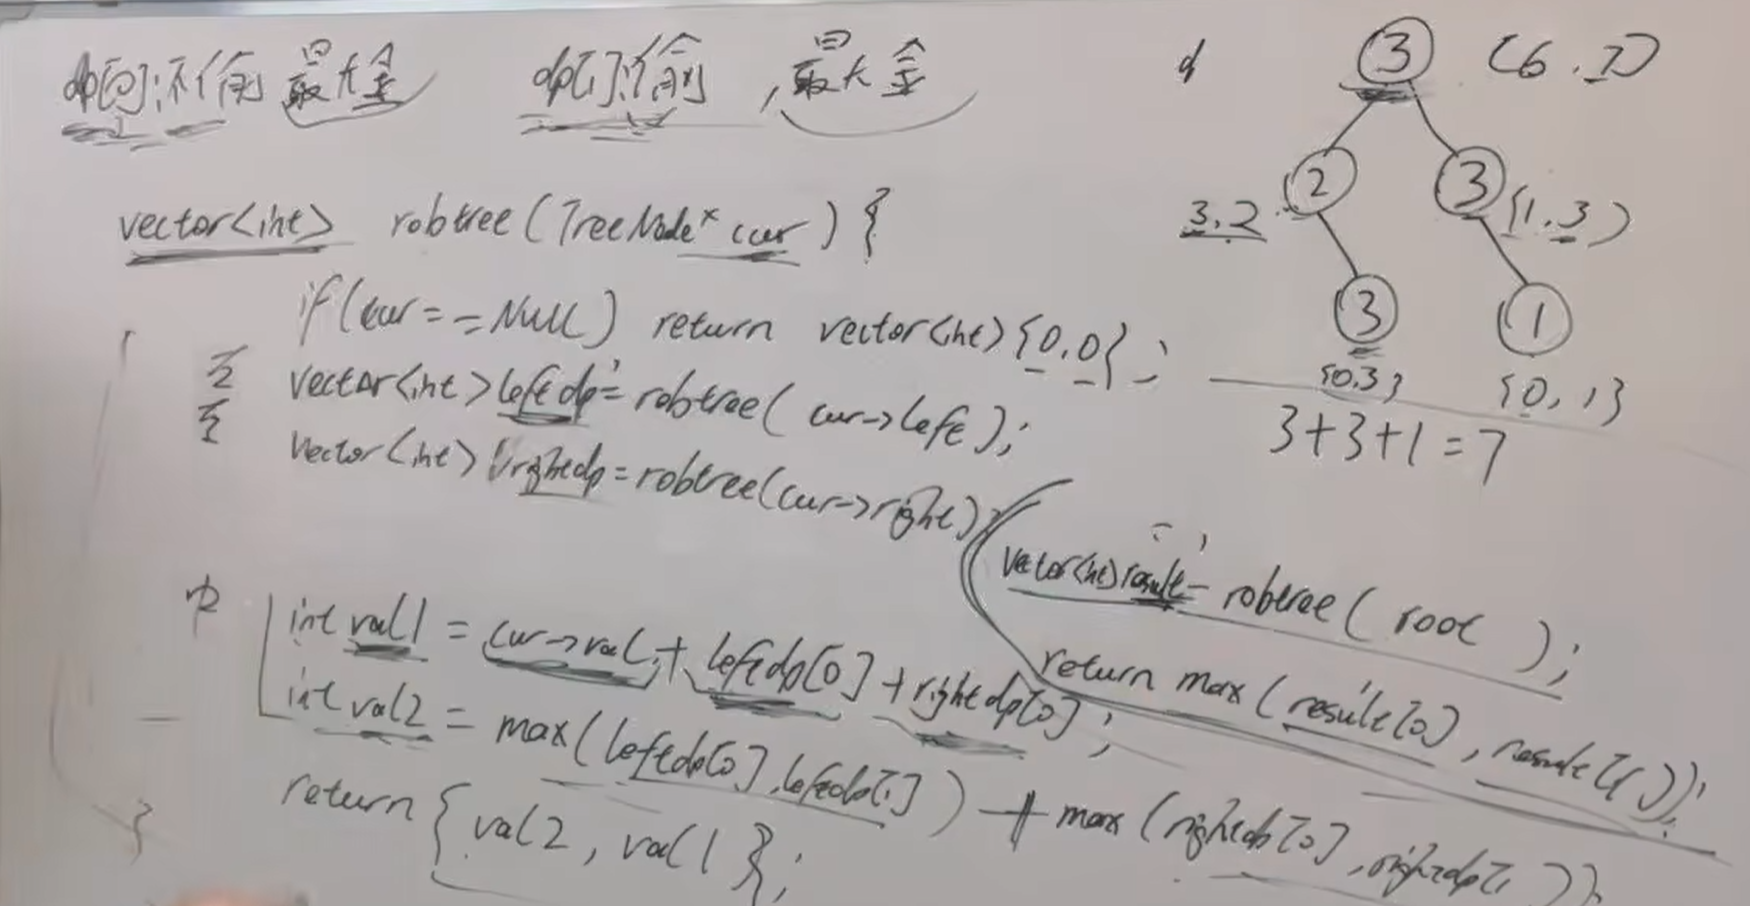 dp[0]:不偷 最大金 dp[1]:偷，最大金
vector<int> robtree(TreeNode* cur) {
if(cur==NULL) return vector<int>{0,0};
左 vector<int> leftdp=robtree(cur->left);
右 vector<int> rightdp=robtree(cur->right);
中 int val1 = cur->val + leftdp[0] + rightdp[0];
int val2 = max(leftdp[0], leftdp[1]) + max(rightdp[0], rightdp[1]);
return {val2, val1};
}
vector<int> result = robtree(root);
return max(result[0], result[1]);
3 (6,7)
3,2 2 3 {1,3}
3 1
{0,3} {0,1}
3+3+1=7